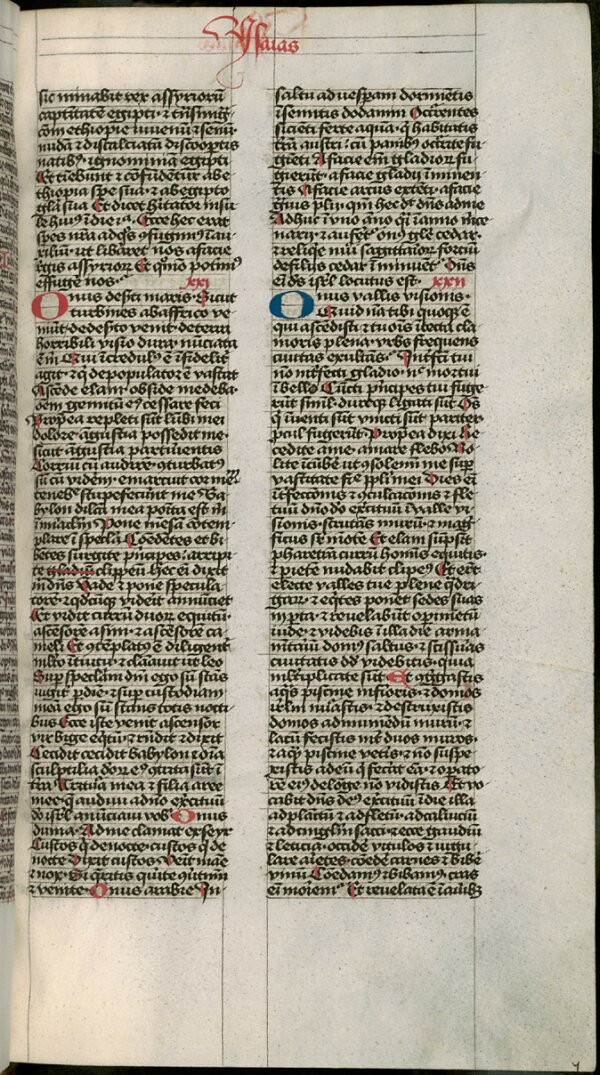 Ysaias
sic minabit rex assyrioru
captitate egipti · et tnsmig-
com ethiopie iuvenu et senu
nuda et discalciatu discooptis
natib9 · ignominia egipti
Et tiebunt et cofudetur ab e-
thiopia spe sua · et ab egypto
gla sua Et dicet hitator insu-
le hui9 i die ia · Ecce hec erat
spes nra ad qs ofugim9 i au-
xiliu · ut libaret nos a facie
regis assyrior Et quo potim9
effuge nos · xxi
Onus desti maris · Sicut
turbines ab affrico ve-
nut · de desto venit · de terra
horribili visio dura nuciata
e m Qui icredul9 e ifidelit
agit · et q depopulator e vastat
Ascede elam · obside mede ba
oem gemitu e9 cessare feci
Propea repleti sut lubi mei
dolore · agustia possedit me ·
sicut agustia parturientis
Corrui cu audire · oturbat9
su cu videm · emarcut cor me
tenebe stupefecunt me Ba-
bylon dilca mea poita est m
i miaclm Pone mesa cotem-
plare i specla Coedetes et bi-
betes surgite pncipes · arripi-
te clippeu hec ei dixit
m dns Vade et pone specula-
tore · et qdcuq videit annuciet
Et vidit curru duor equitu ·
ascesore asini · et ascesore ca-
meli Et otemplat9 e diligent
mlto ituitu · et clamavit ut leo
Sup speclam dni ego su stas
iugit p die · et sup custodiam
mea ego su stans totis nocti-
bus Ecce iste venit ascensor
vir bige eqtu · et rndit et dixit
Cecidit cecidit babylon et oia
sculptilia deor e9 otrita sut i
tra Tritura mea et filia aree
mee · q audivi a dno exercituu
do isrl anuciavi vob Onus
duma · Ad me clamat ex seyr
Custos q de nocte · custos q de
nocte Dixit custos Veit mae
et nox · Si qritis quite outimi
et venite · Onus arabie In
saltu ad vespam dormietis
i semitis dodanim Ocrrentes
sicieti ferte aqua · q habitatis
tra austri · cu panib9 ocrite fu-
gieti A facie em gladior fu-
gierut · a facie gladii iminen-
tis A facie arcus exteti · a facie
gvis plii · qm hec d dns ad me
Adhuc i uno ano qi i anno mce-
narii et aufet ois gle cedar ·
et reliqe nui sagittaior fortiu
de filiis cedar iminuet · Dns
ei ds isrl locutus est · xxii
Onus vallis visionis ·
Quid na tibi quoq e
qui ascedisti et tu ois i tecta cla-
moris plena · vrbs frequens
civitas exultas · Intfcti tui
no intfecti gladio · nc mortui
i bello Cuncti pncipes tui fuge-
rut simul · dureq ligati sut Os
q iventi sut vincti sut pariter
pcul fugerut · Propea dixi Re-
cedite a me · amare flebo No-
lite icube ut osolem me sup
vastitate filie ppli mei Dies ei
itfectonis et oculcacionis et fle-
tuu dno do exercituu i valle vi-
sionis · scrutas muru · et mag-
ficus sr mote Et elam supsit
pharetra curru homis equitis ·
et piete nudabit clipe9 Et ert
electe valles tue plene qdri-
gar · et eqtes ponet sedes suas
i mpta · et revelabit opimetu
iude · et videbis i illa die arma
mtariu dom9 saltus · et scissuras
civitatis dd videbitis · quia
mltiplicate sut Et ogregastis
aqs piscine inferioris · et domos
irlm nuastis · et destruxistis
domos ad muniendu muru · et
lacu fecistis int duos muros ·
et aqm piscine vetis · et no suspe-
xistis ad eu q fecat ea · et opato-
re ei9 de loge no vidistis Et vo-
cabit dns de9 exercituu i die illa
ad planctu et ad fletu · ad calviciu
et ad cinglm sacci · et ecce gaudiu
et leticia · occide vitulos et iugu-
lare arietes · coede carnes et bibe
vinu Coedam9 et bibam9 · cras
ei moriem Et revelata e i aurib9